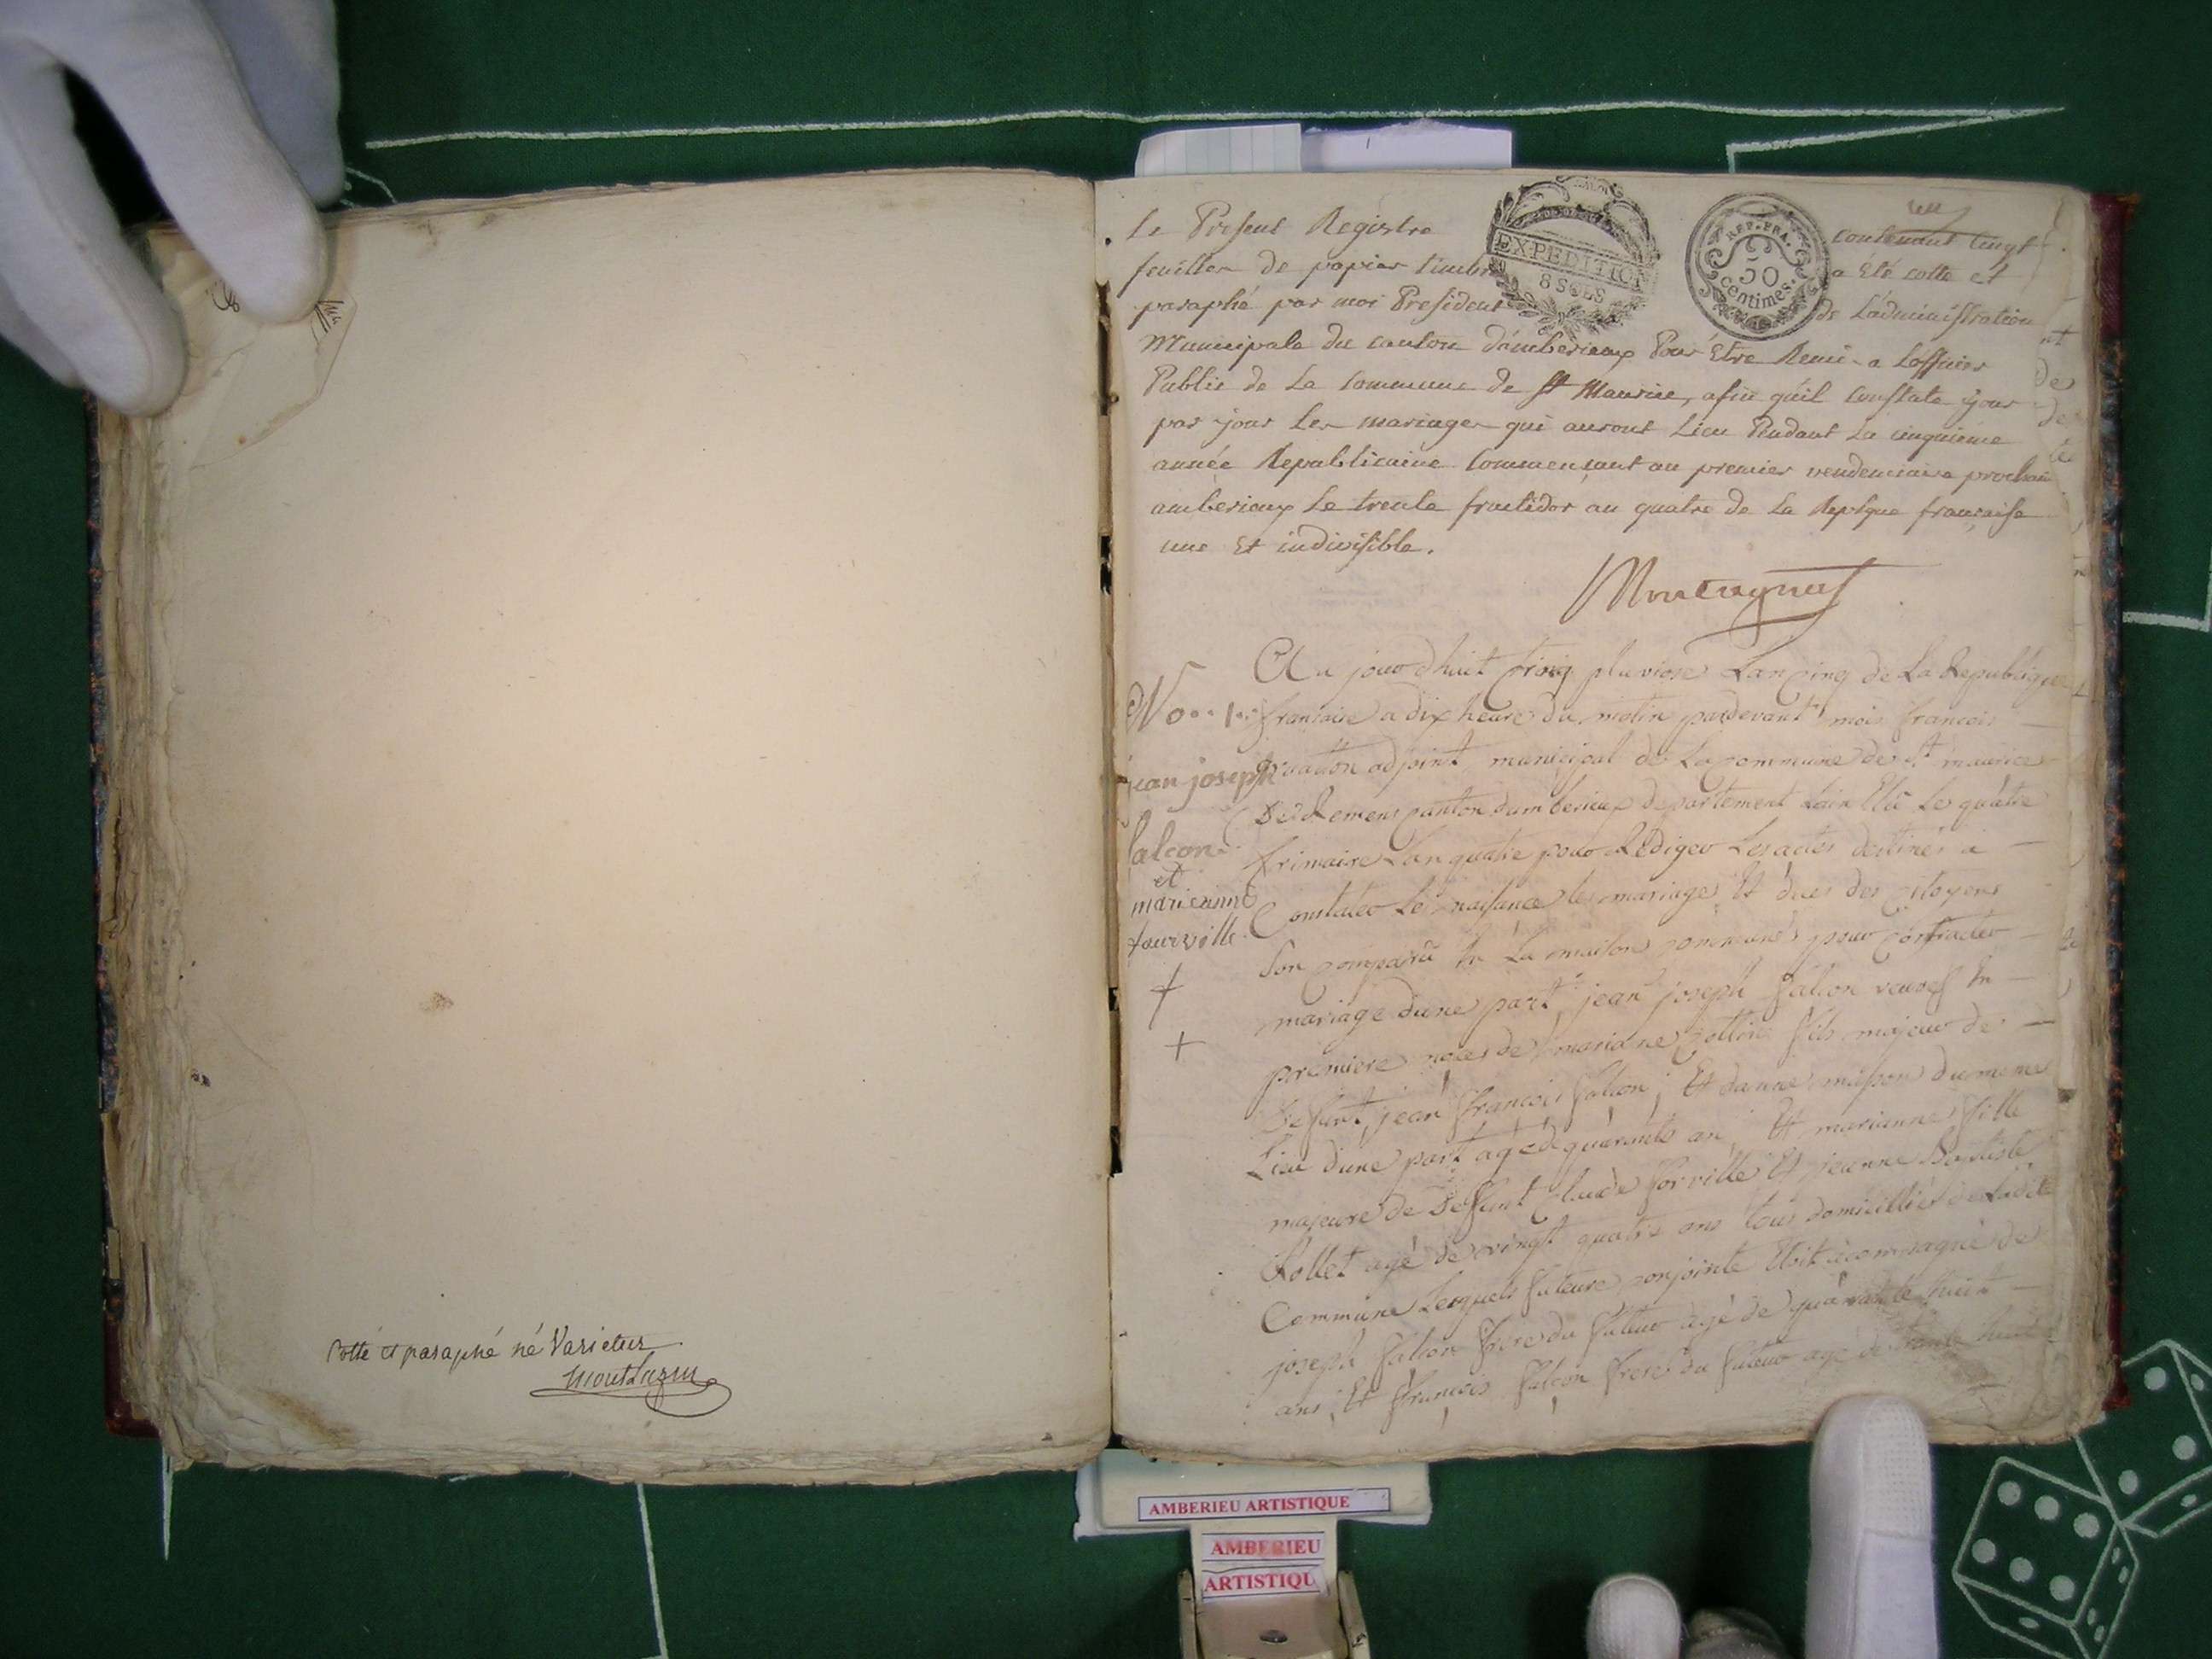 Cotté et paraphé né Varietur
Le Present Registre contenant vingt
feuilles de papier timbré a été cotté et
paraphé par moi President de L'administration
Municipale du canton d'amberieux Pour Etre Remi a Lofficier
Public de La Commune de St Maurice, afin qu'il Constate jour
par jour Les mariages qui auront Lieu Pendant La cinquieme
année Republicaine Commensant au premier vendemiaire prochain
amberieux Le trente fructidor an quatre de La Repĺque française
une Et indivisible.
EXPEDITION
8 SOLS
REP. FRA.
50
centimes.
No 1
jean joseph
falcon
et
marieanne
fourville
Au jourdhuit cinq pluviose Lan cinq de La Republique
francaise a dix heure du matin pardevant moi francois
adjoint municipal de La commune de St maurice
De Remens canton damberieux departement Lain Elú Le quatre
frimaire Lan quatre pour Rédiger Les actes destinés a
Constater Les naisance les mariage Et déces des citoyens
Son comparû En La maison commune pour contracter
mariage dune part jean joseph falcon veuve En
premiere noces de mariane fils majeur de
Defunt jean francois falcon, Et danne du meme
Lieu dune part agé de quarante an, Et marianne fille
majeure de Deffunt Claude forville Et jeanne Baptiste
Rollet agé de vingt quatre ans tous domicilliés de Ladite
Commune Lesquels futeure conjointe Etoit acompagné de
joseph falcon frere du futeur agé de quarante huit
ans, Et francois falcon frere du futeur agé de trente
AMBERIEU ARTISTIQUE
AMBERIEU
ARTISTIQU